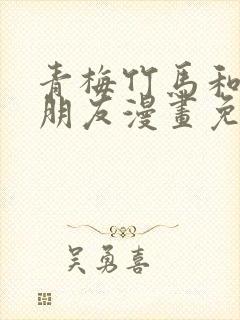 青梅竹馬和
朋友漫畫免
吴勇喜